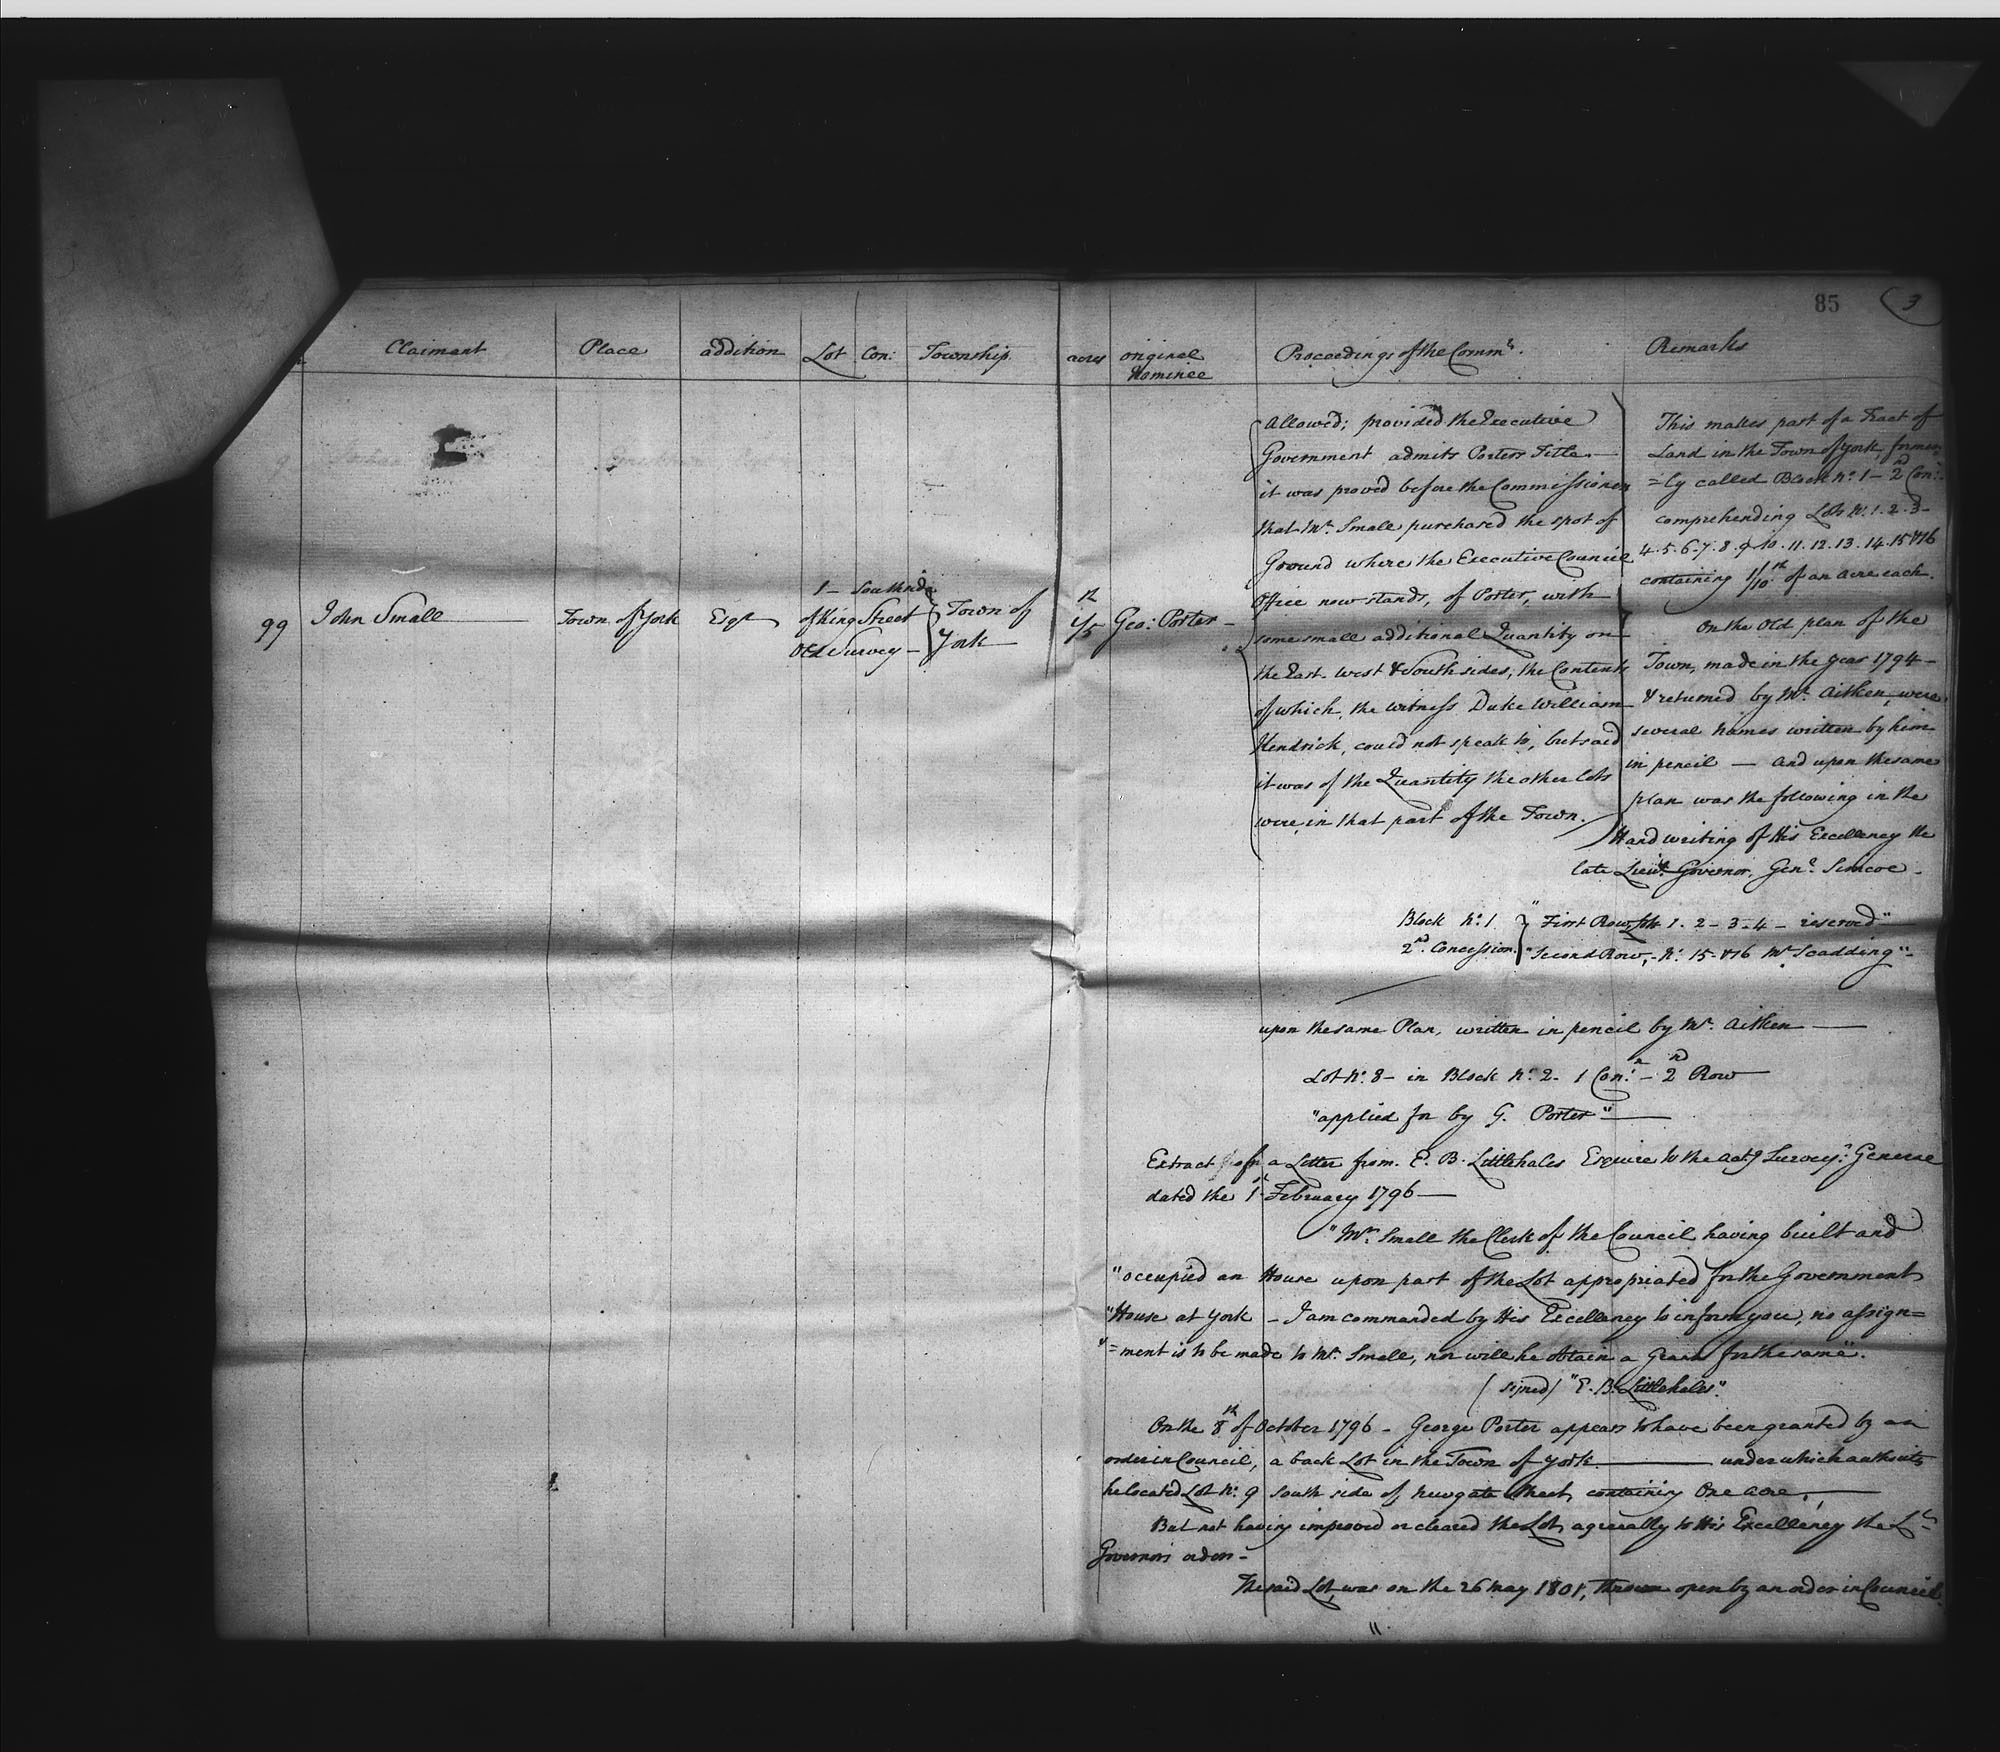 85 3
Claimant Place addition Lot Con: Township acres original Nominee Proceedings of the Commrs. Remarks
99 John Small Town of York Esqr
1 - South side
of King Street
Old Survey -
Town of
York
1/5 Geo: Porter -
Allowed; provided the Executive
Government admits Porters Title. -
it was proved before the Commissioners
that Mr. Small purchased the spot of
Ground where the Executive Council
Office now stands, of Porter, with
some small additional Quantity on
the East. west & South sides; the Contents
of which, the witness Duke William
Kendrick, could not speak to, but said
it was of the Quantity the other Lots
were, in that part of the Town.
This makes part of a Tract of
Land in the Town of York, former
=ly called Block No. 1 - 2nd Con:
comprehending Lots No. 1. 2. 3 -
4. 5. 6. 7. 8. 9. 10. 11. 12. 13. 14. 15 & 16
containing 1/10th of an acre each.
On the Old plan of the
Town, made in the year 1794 -
& returned by Mr. Aitken, were
several Names written by him
in pencil - and upon the same
plan was the following in the
Hand writing of His Excellency the
late Lieut. Governor, Genl. Simcoe -
Block No. 1 } "First Row, Lots 1. 2 - 3 - 4 - reserved"
2nd. Concession. } "Second Row, - No. 15 - & 16 Mr Scadding" -
upon the same Plan, written in pencil by Mr. Aitken -
Lot No. 8 - in Block No. 2 - 1 Con:n - 2nd Row
"applied for by G. Porter" -
Extract from a Letter from. E. B. Littlehales Esquire to the actg Survey:r General
dated the 1st February 1796 -
"Mr. Small the Clerk of the Council having built and
"occupied an House upon part of the Lot appropriated for the Government
"House at York - I am commanded by His Excellency to inform you, no assign=
"=ment is to be made to Mr. Small, nor will he obtain a Grant for the same".
(signed) "E. B. Littlehales".
On the 8th of October 1796 - George Porter appears to have been granted by an
order in Council, a back Lot in the Town of York. - under which authority
he located Lot No. 9 South side of Newgate Street, containing One acre, -
But not having improved or cleared the Lot, agreeably to His Excellency the Lt
Governors orders -
The said Lot, was on the 26 May 1801, thrown open by an order in Council.